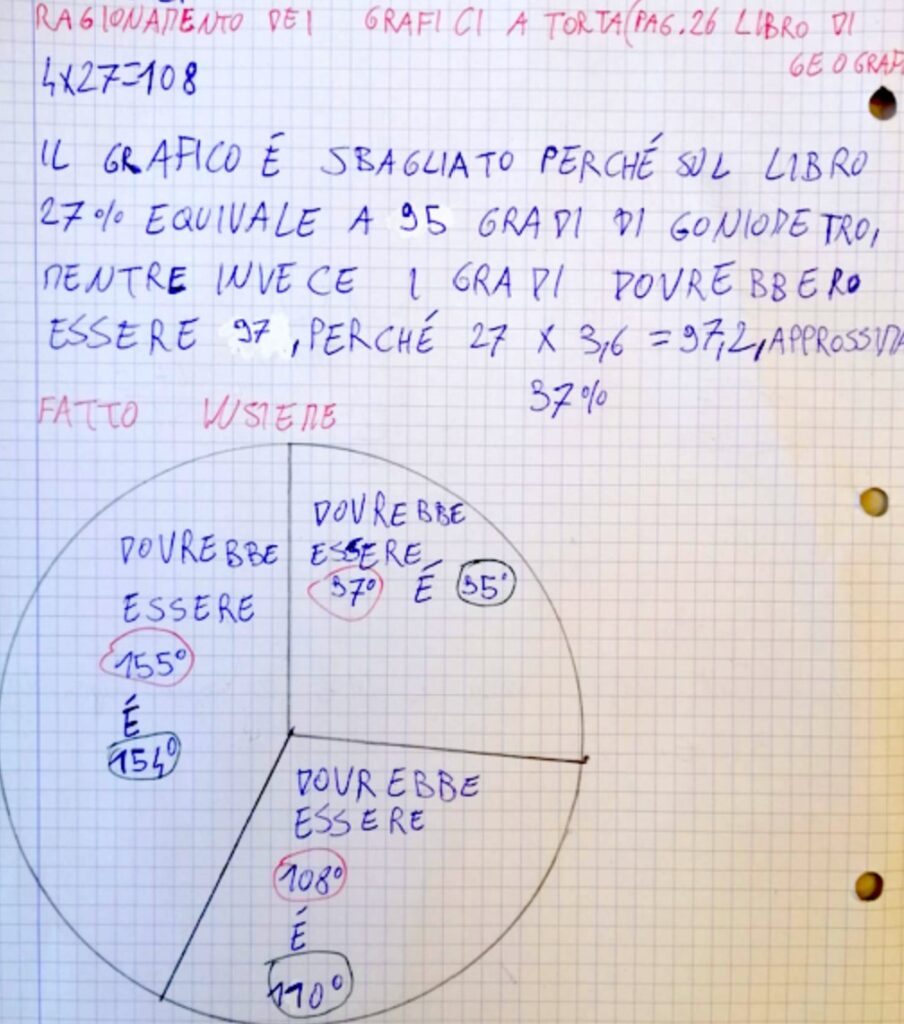 RAGIONAMENTO DEI GRAFICI A TORTA (PAG. 26 LIBRO DI
GEOGRAF
4X27=108
IL GRAFICO É SBAGLIATO PERCHÉ SUL LIBRO
27% EQUIVALE A 95 GRADI DI GONIOMETRO,
MENTRE INVECE I GRADI DOVREBBERO
ESSERE 97, PERCHÉ 27 X 3,6 = 97,2, APPROSSIMA
97%
FATTO INSIEME
DOVREBBE
ESSERE
97° É 95°
DOVREBBE
ESSERE
155°
É
154°
DOVREBBE
ESSERE
108°
É
110°